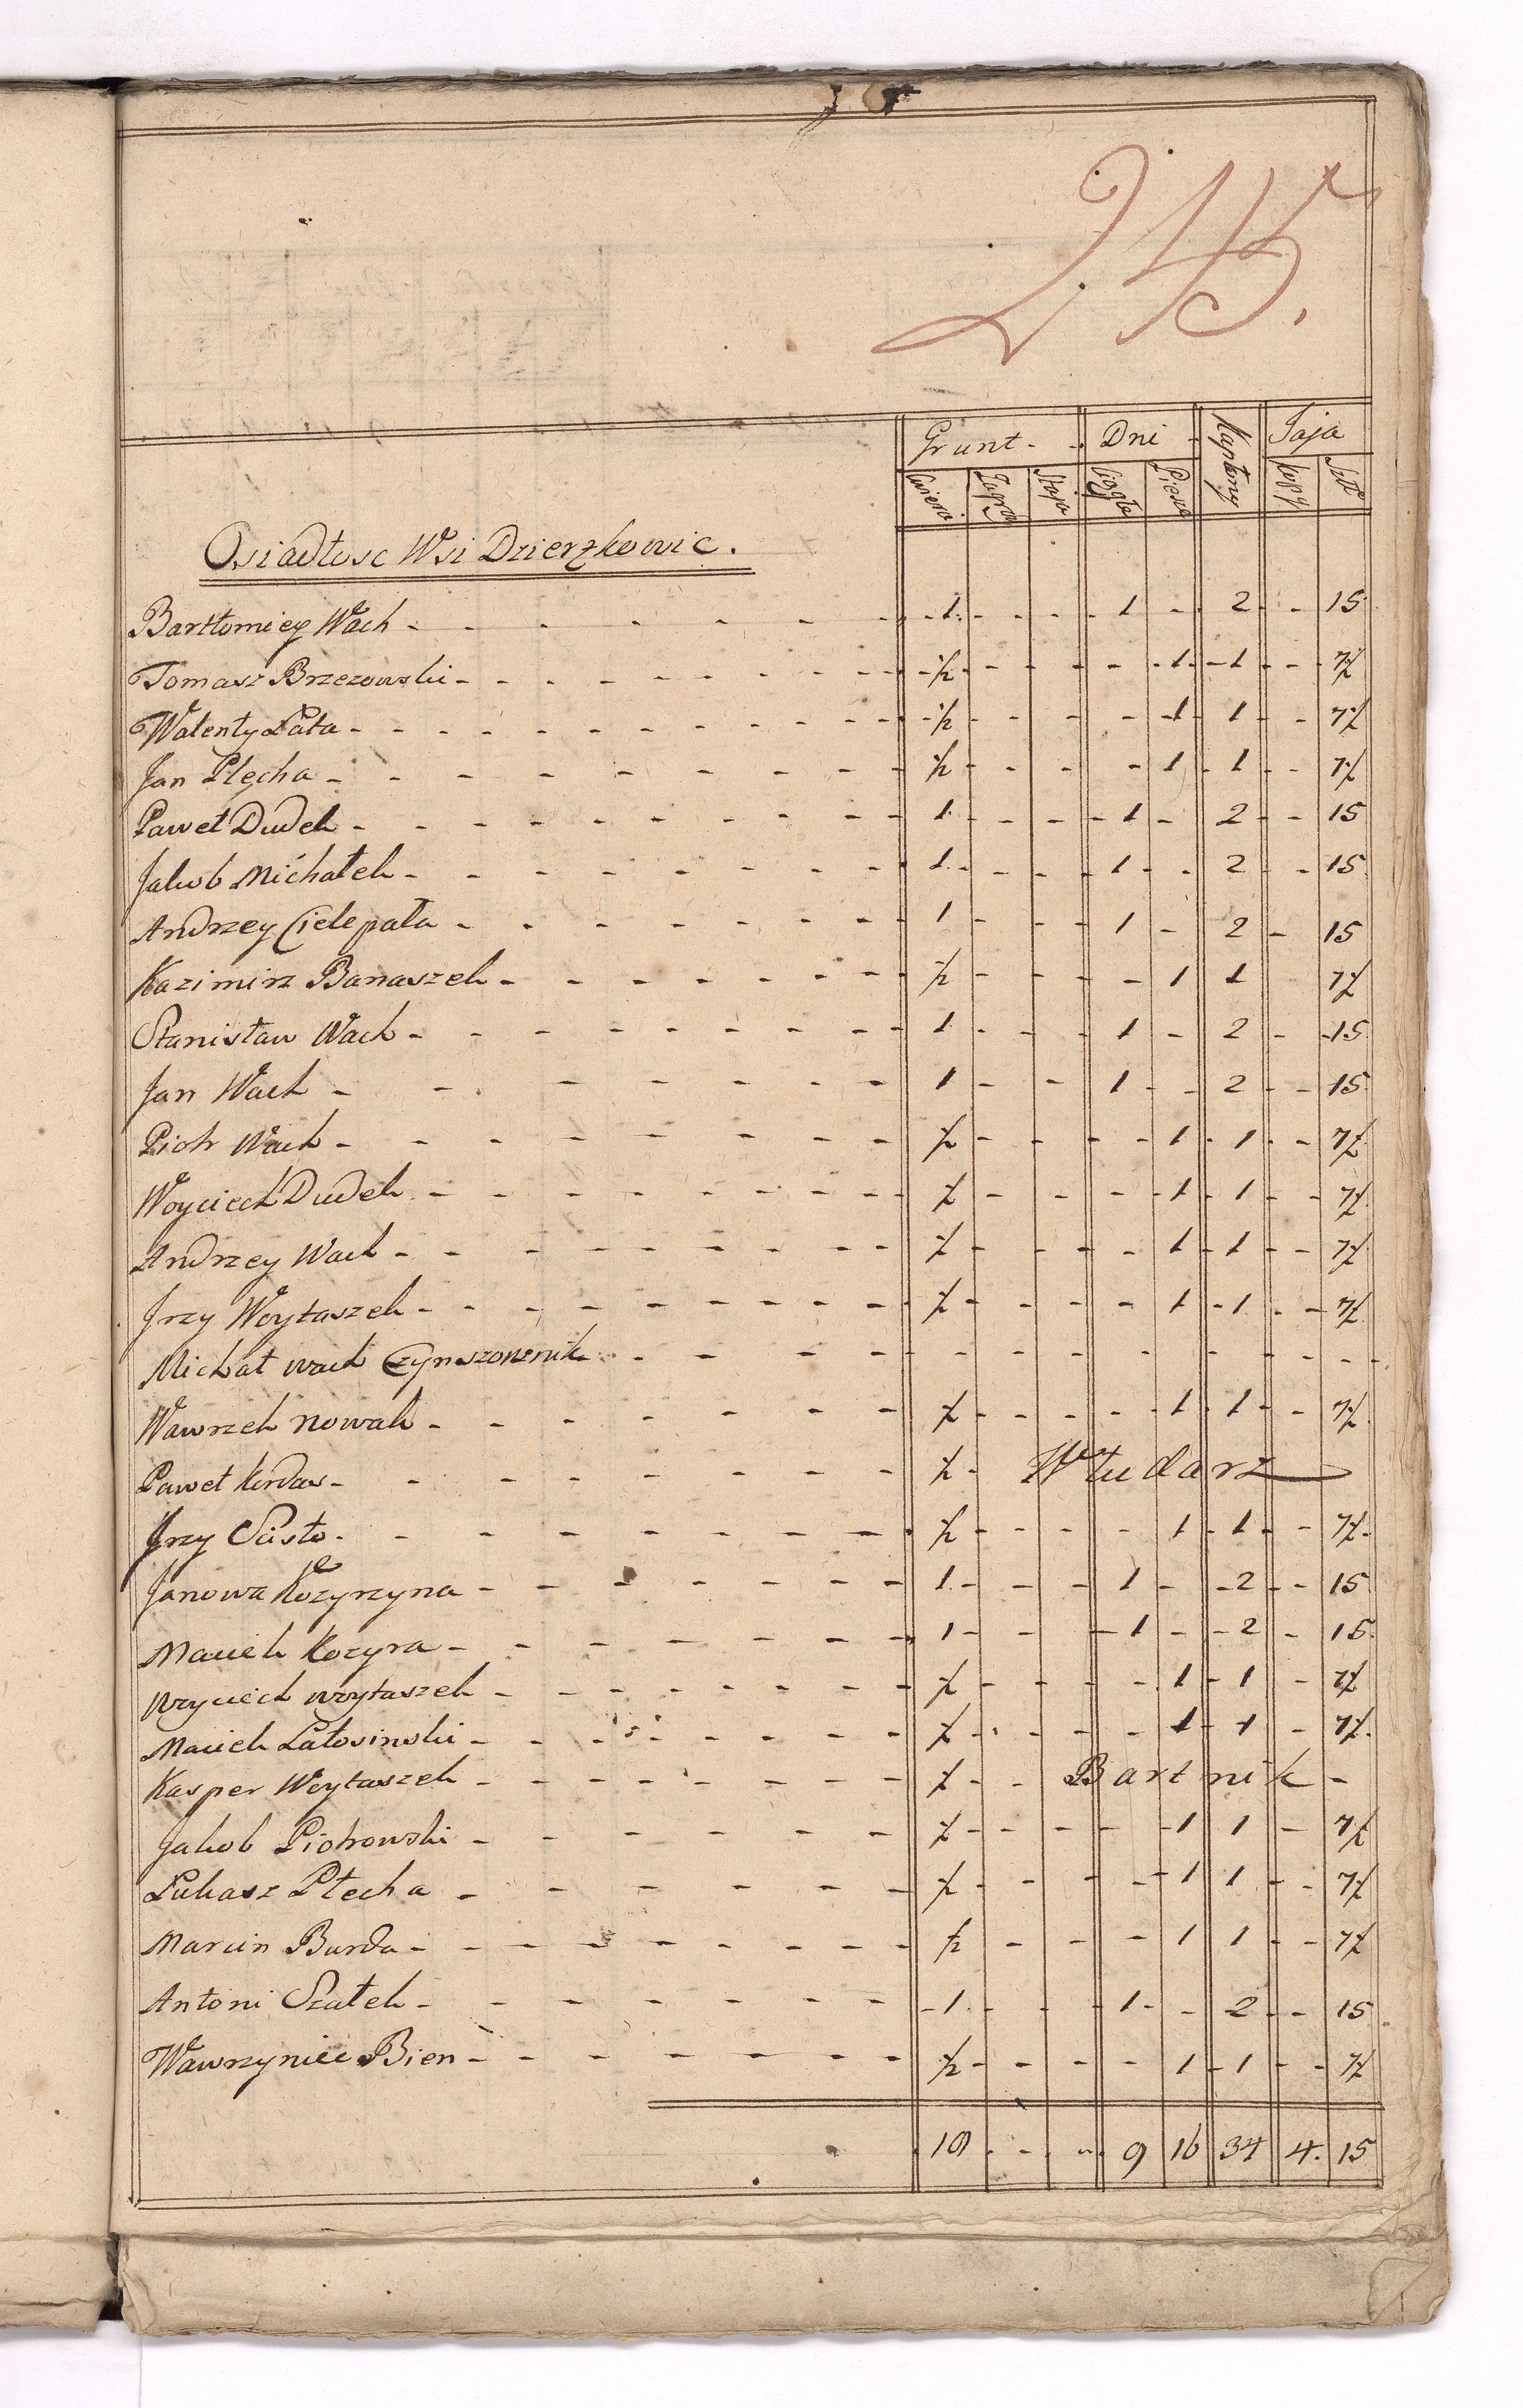 245.
Grunt - Dni - Kapłony Jaja
Cwierci Zagon Staja Ciągłe Piesze kopy Szt
Osiadłosc Wsi Dzierzkowic.
Bartłomiey Wach - 1 - - 1 - 2 - 15
Tomasz Brzezowski - ½ - - - 1 - 1 - - 7½
Walenty Łata - ½ - - - 1 1 - 7½
Jan Plecha - ½ - - - 1 - 1 - - 7½
Paweł Dudek - 1 - - - 1 - 2 - - 15
Jakob Michałek - 1 - - 1 - - 2 - 15
Andrzey Cielepała - 1 - - 1 - 2 - 15
Kazimirz Banaszek - ½ - - - 1 1 7½
Stanisław Wach - 1 - - 1 - 2 - 15
Jan Wach - 1 - - 1 - - 2 - - 15
Piotr Wach - ½ - - - 1 - 1 - - 7½
Woyciech Dudek - ½ - - - 1 - 1 - - 7½
Andrzey Wach - ½ - - - 1 - 1 - - 7½
Jrzy Woytaszek - ½ - - - 1 - 1 - - 7½
Michał wach Czynszownik - - - - - - - -
Wawrzek nowak - ½ - - - 1 - 1 - - 7½
Paweł Kordas - ½ - Włudarz
Jrzy Susło - ½ - - - 1 - 1 - - 7½
Janowa Kozyrzyna - 1 - - - 1 - - 2 - - 15
Maciek Kozyra - 1 - - 1 - - 2 - 15
Woyciech woytaszek - ½ - - - 1 - 1 - 7½
Maciek Latosinski - ½ - - - 1 - 1 - 7½
Kasper Woytaszek - ½ - - Bartnik -
Jakob Piotrowski - ½ - - - - 1 1 - 7½
Łukasz Plecha - ½ - - - 1 1 - - 7½
Marcin Burda - ½ - - - 1 1 - - 7½
Antoni Szałek - 1 - - 1 - - 2 - - 15
Wawrzyniec Bien - ½ - - - 1 - 1 - - 7½
19 - - - 9 16 34 4. 15